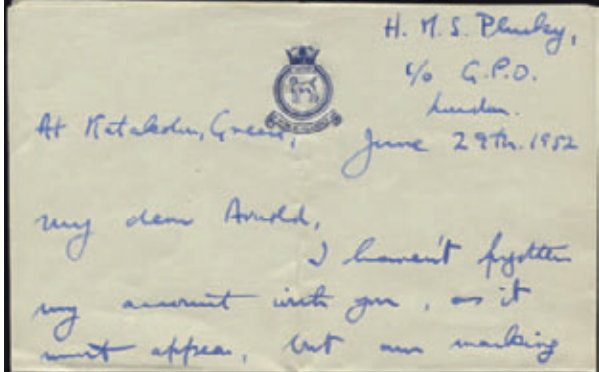 H. M. S. Plucky,
c/o G. P. O.
London.
At Katakolon, Greece, June 29th. 1952
My dear Arnold,
I haven't forgotten
my account with you, as it
must appear, but am making